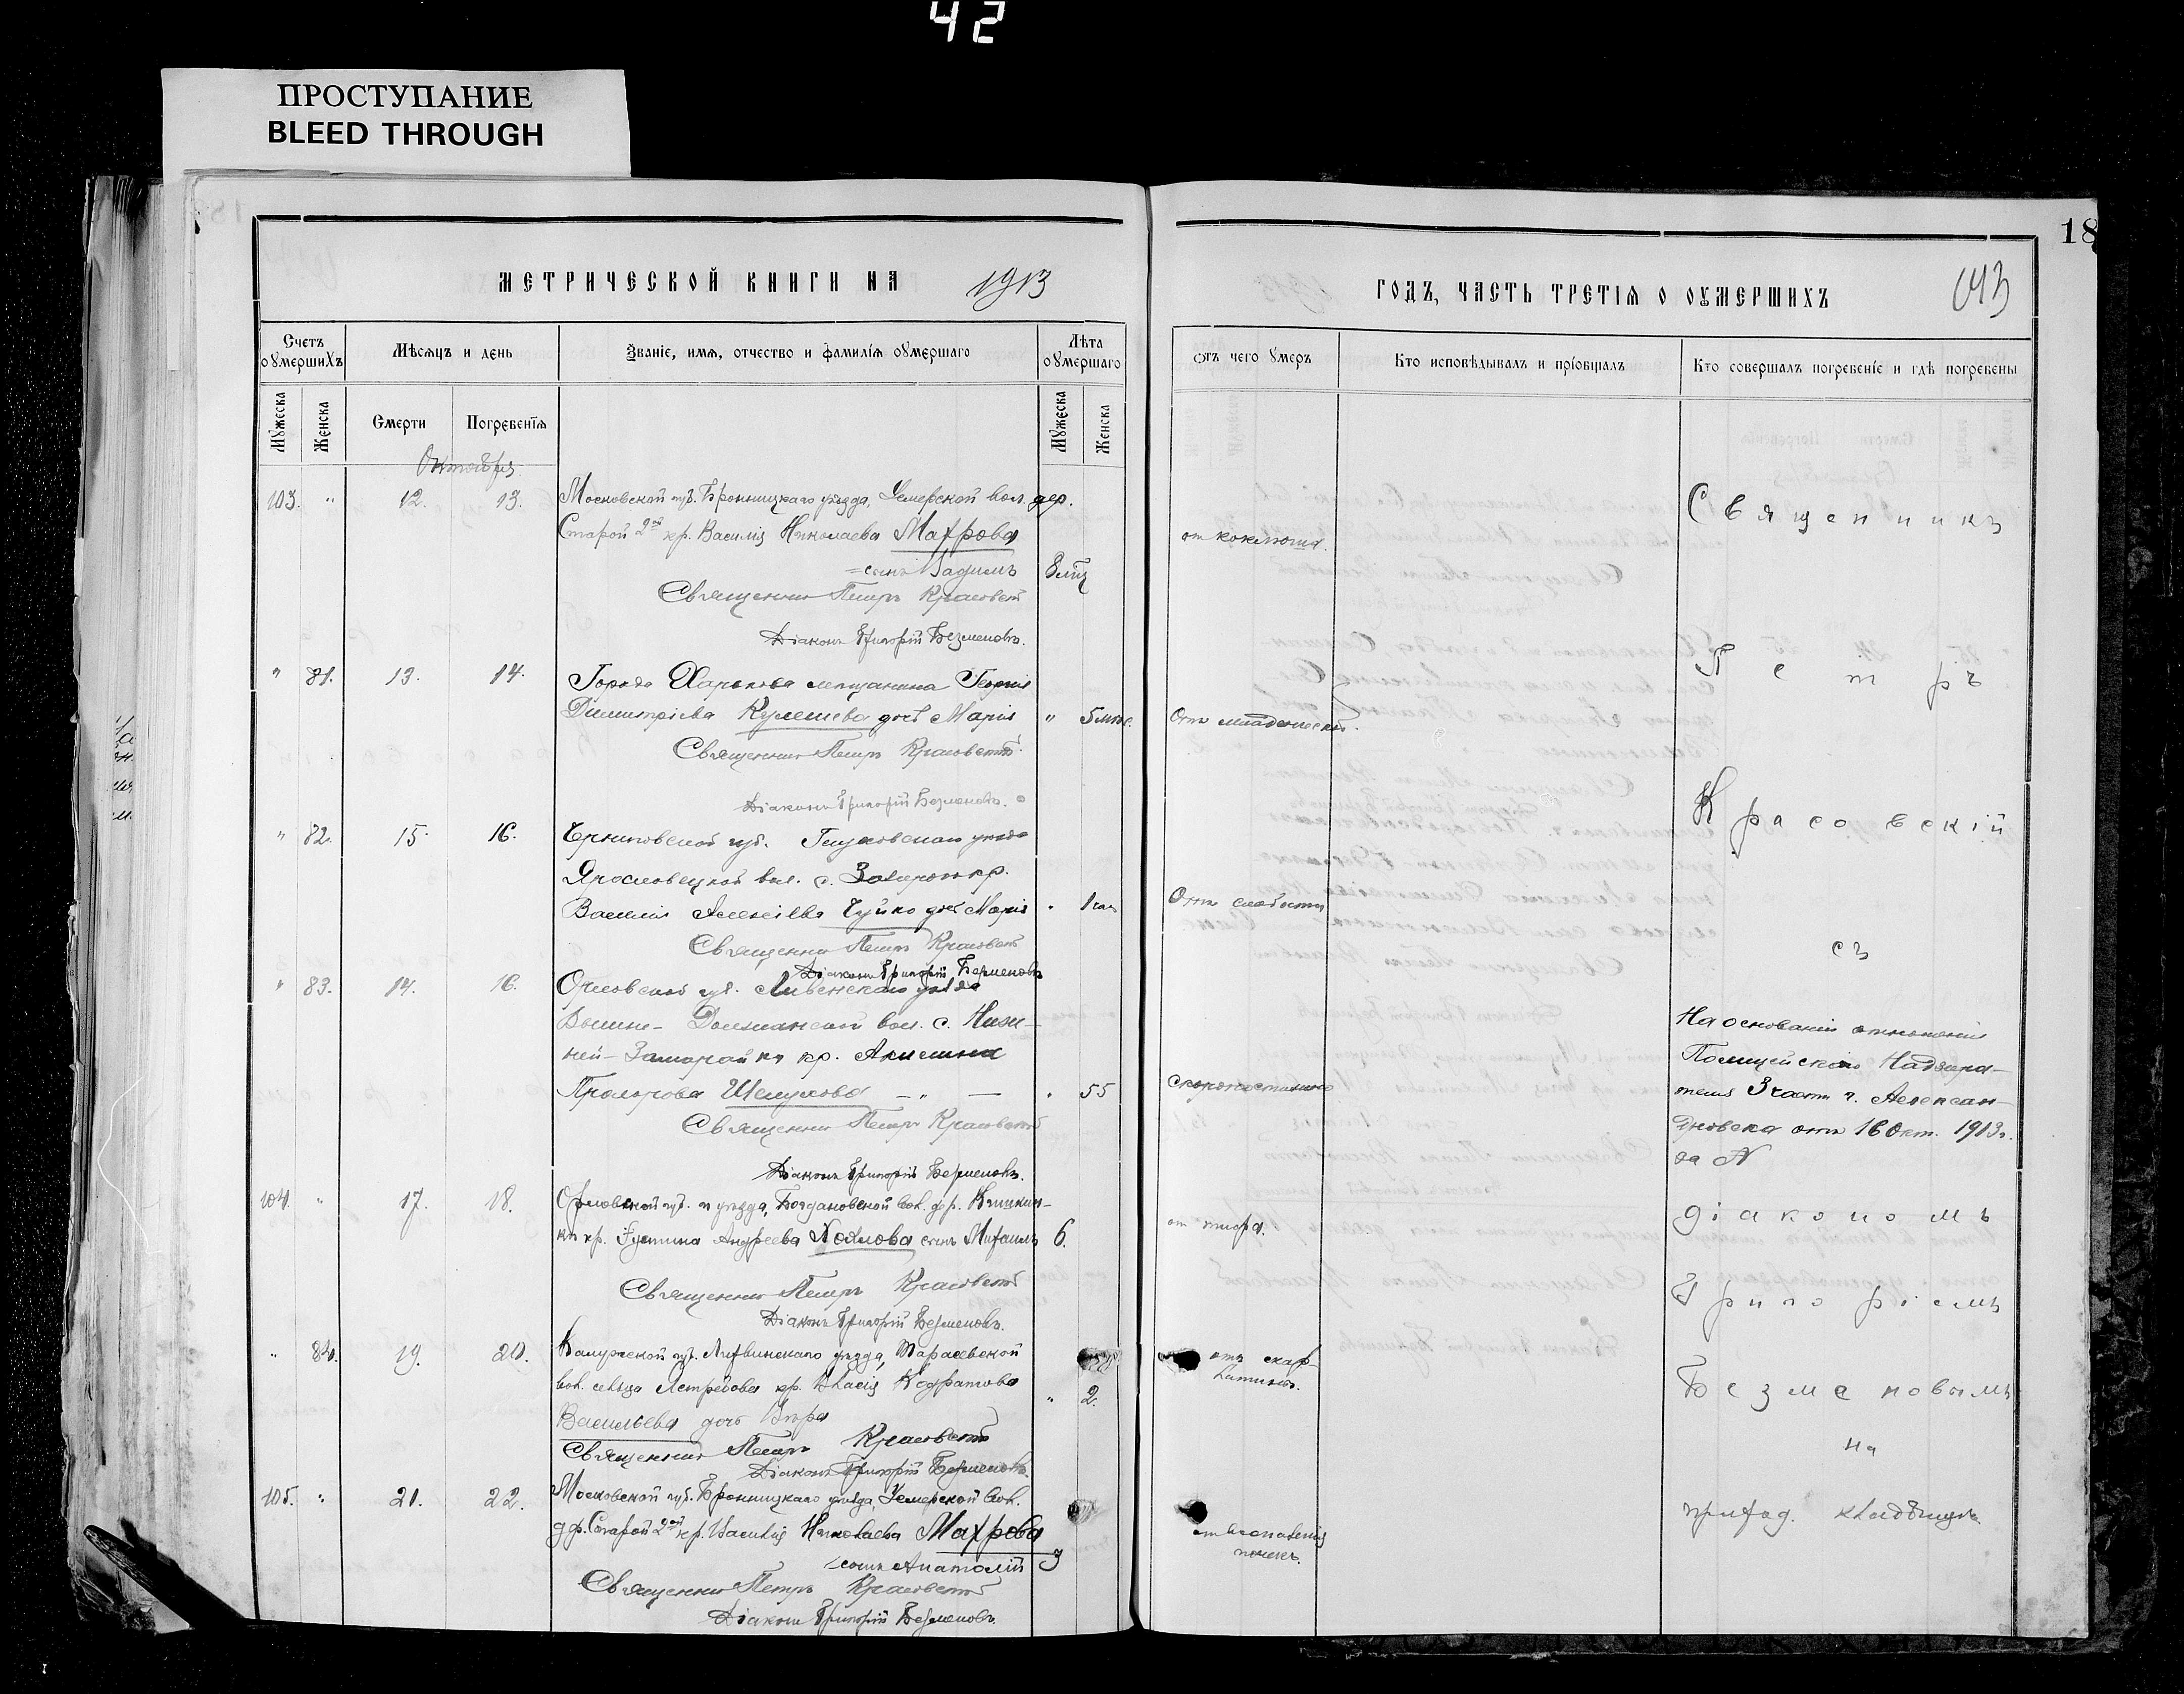 42
ПРОСТУПАНИЕ
BLEED THROUGH
18
МЕТРИЧЕСКОЙ КНИГИ НА 1913
ГОДЪ, ЧАСТЬ ТРЕТІЯ О ОУМЕРШИХЪ
Счетъ оумершихъ
Мѣсяцъ и день
Званіе, имя, отчество и фамилія оумершаго
Лѣта оумершаго
Отъ чего умеръ
Кто исповѣдывалъ и пріобщалъ
Кто совершалъ погребеніе и гдѣ погребены
Мужеска
Женска
Смерти
Погребенія
Мужеска
Женска
Октября
103. " 12. 13. Московской губ. Бронницкаго уѣзда, Усмерской вол. дер.
Старой 2ой кр. Василія Николаева Махрова
сынъ Вадимъ 8 мц
от коклюша.
Священникъ Петръ Красовскій
Діаконъ Григорій Безменовъ.
" 81. 13. 14. Города Харькова мещанина Георгія
Димитріева Кулешева дочь Марія " 5 мѣс.
Отъ младенческой.
Священникъ Петръ Красовскій
Діаконъ Григорій Безменовъ.
" 82. 15. 16. Черниговской губ. Глуховскаго уѣзда
Ярославецкой вол. с. кр.
Василія Алексѣева Чуйко дочь Марія " 1
Отъ слабости
Священникъ Петръ Красовскій
Діаконъ Григорій Безменовъ
" 83. 14. 16. Орловской губ. Ливенскаго уѣзда
Вышне-Должанской вол. с. Ниж-
ней-Заморайки кр. Акилина
Прохорова Шелухова — " — " 55
скоропостижно
Священникъ Петръ Красовскій
Діаконъ Григорій Безменовъ.
104. " 17. 18. Орловской губ. и уѣзда, Богдановской вол. дер.
ки кр. Іустина Андреева сынъ Михаилъ 6.
от тифа.
Священникъ Петръ Красовскій
Діаконъ Григорій Безменовъ.
" 84. 19. 20. Калужской губ. Лихвинскаго уѣзда,
вол. сельца кр. Власія Кодратова
Васильева дочь Вѣра " 2.
отъ скар-
латины.
Священникъ Петръ Красовскій
Діаконъ Григорій Безменовъ.
105. " 21. 22. Московской губ. Бронницкаго уѣзда, Усмерской вол.
дер. Старой 2ой кр. Василія Николаева Махрова
сынъ Анатолій 3
от воспаленія
почекъ.
Священникъ Петръ Красовскій
Діаконъ Григорій Безменовъ.
Священникъ
Петръ
Красовскій
съ
На основаніи отношенія
Полицейскаго Надзира-
теля 3 части г. Алексан-
дровска отъ 16 Окт. 1913 г.
за №
діакономъ
Григоріемъ
Безменовымъ
на
приход. кладбищѣ.